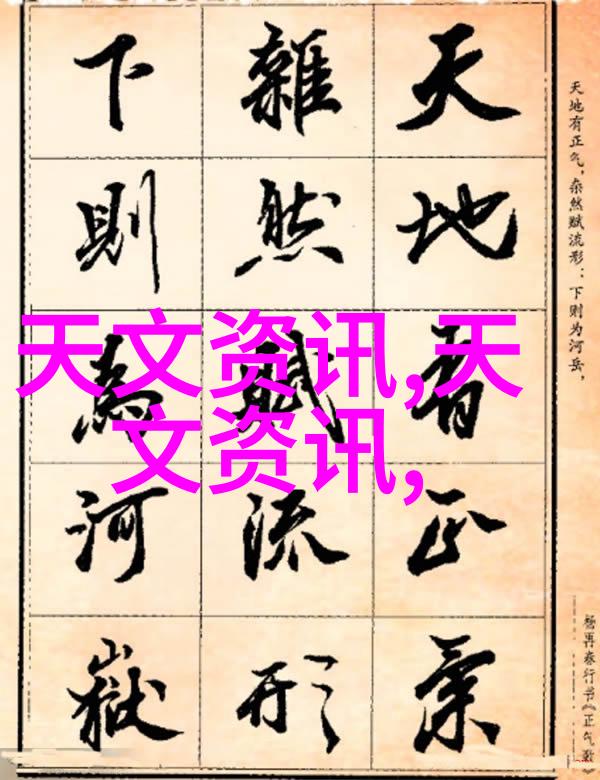 天地有正气，杂然赋流形：下则为河岳，
杨再春行书《正气歌》
天地有正氣
雜然賦流形
下則為河嶽
天文资讯,天
文资讯,